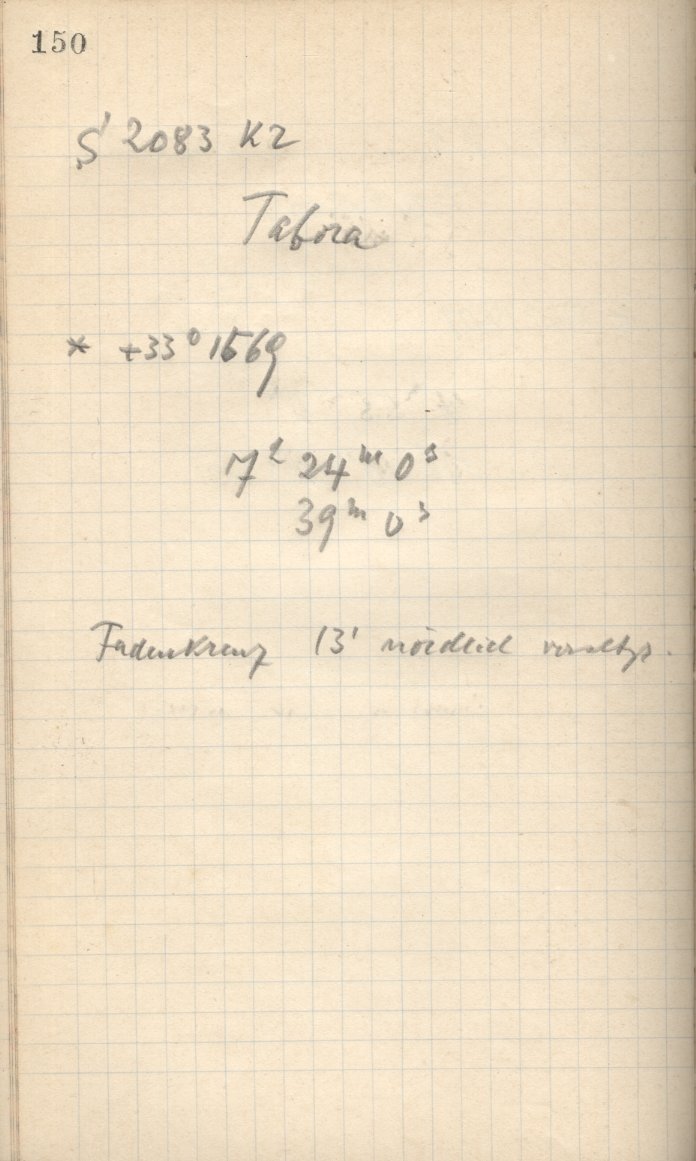 150
S' 2083 K2
Tabora
* +33° 1569
7ʰ 24ᵐ 0ˢ
39ᵐ 0ˢ
Fadenkreuz 13' nördlich